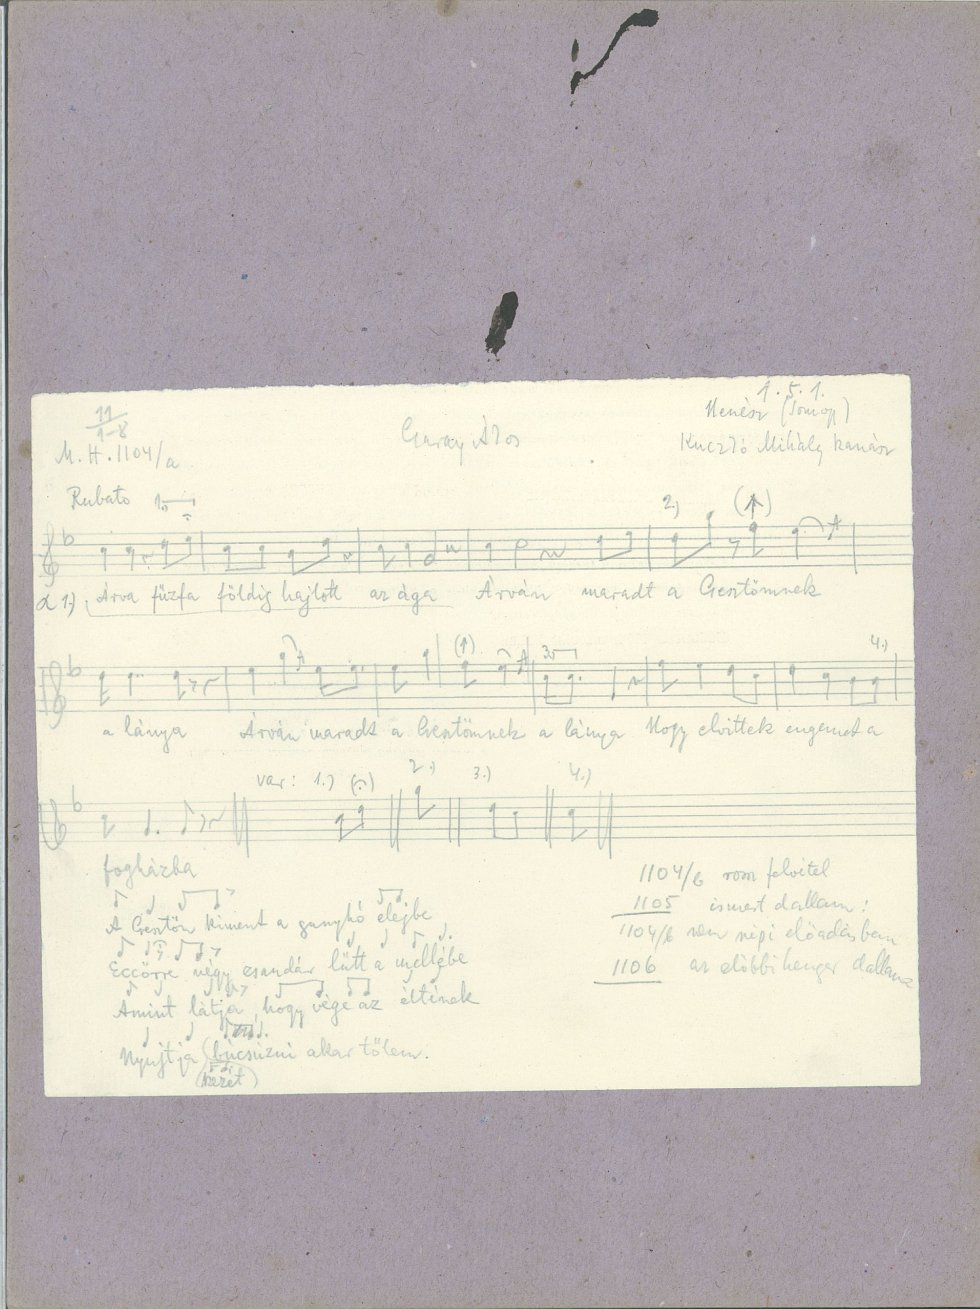 1. 5. 1.
11
1-8
Garay Ákos
Nenész (Somogy)
M. H. 1104/a
Mihály kanász
Rubato
2.)
1.) Árva fűzfa földig hajlott az ága Árván maradt a Gesztömnek
3 4.)
a lánya Árván maradt a Gesztömnek a lánya Hogy elvittek engemet a
var: 1.) 2.) 3.) 4.)
fogházba
A Gesztön kiment a gunyhó elejbe
Eccörre négy zsandár lűtt a mellébe
Amint látja, hogy vége az éltinek
Nyujtja (búcsúzni akar tőlem.
(kezet)
1104/b rossz felvétel
1105 ismert dallam!
1104/b nem népi előadásban
1106 az előbbi henger dallama